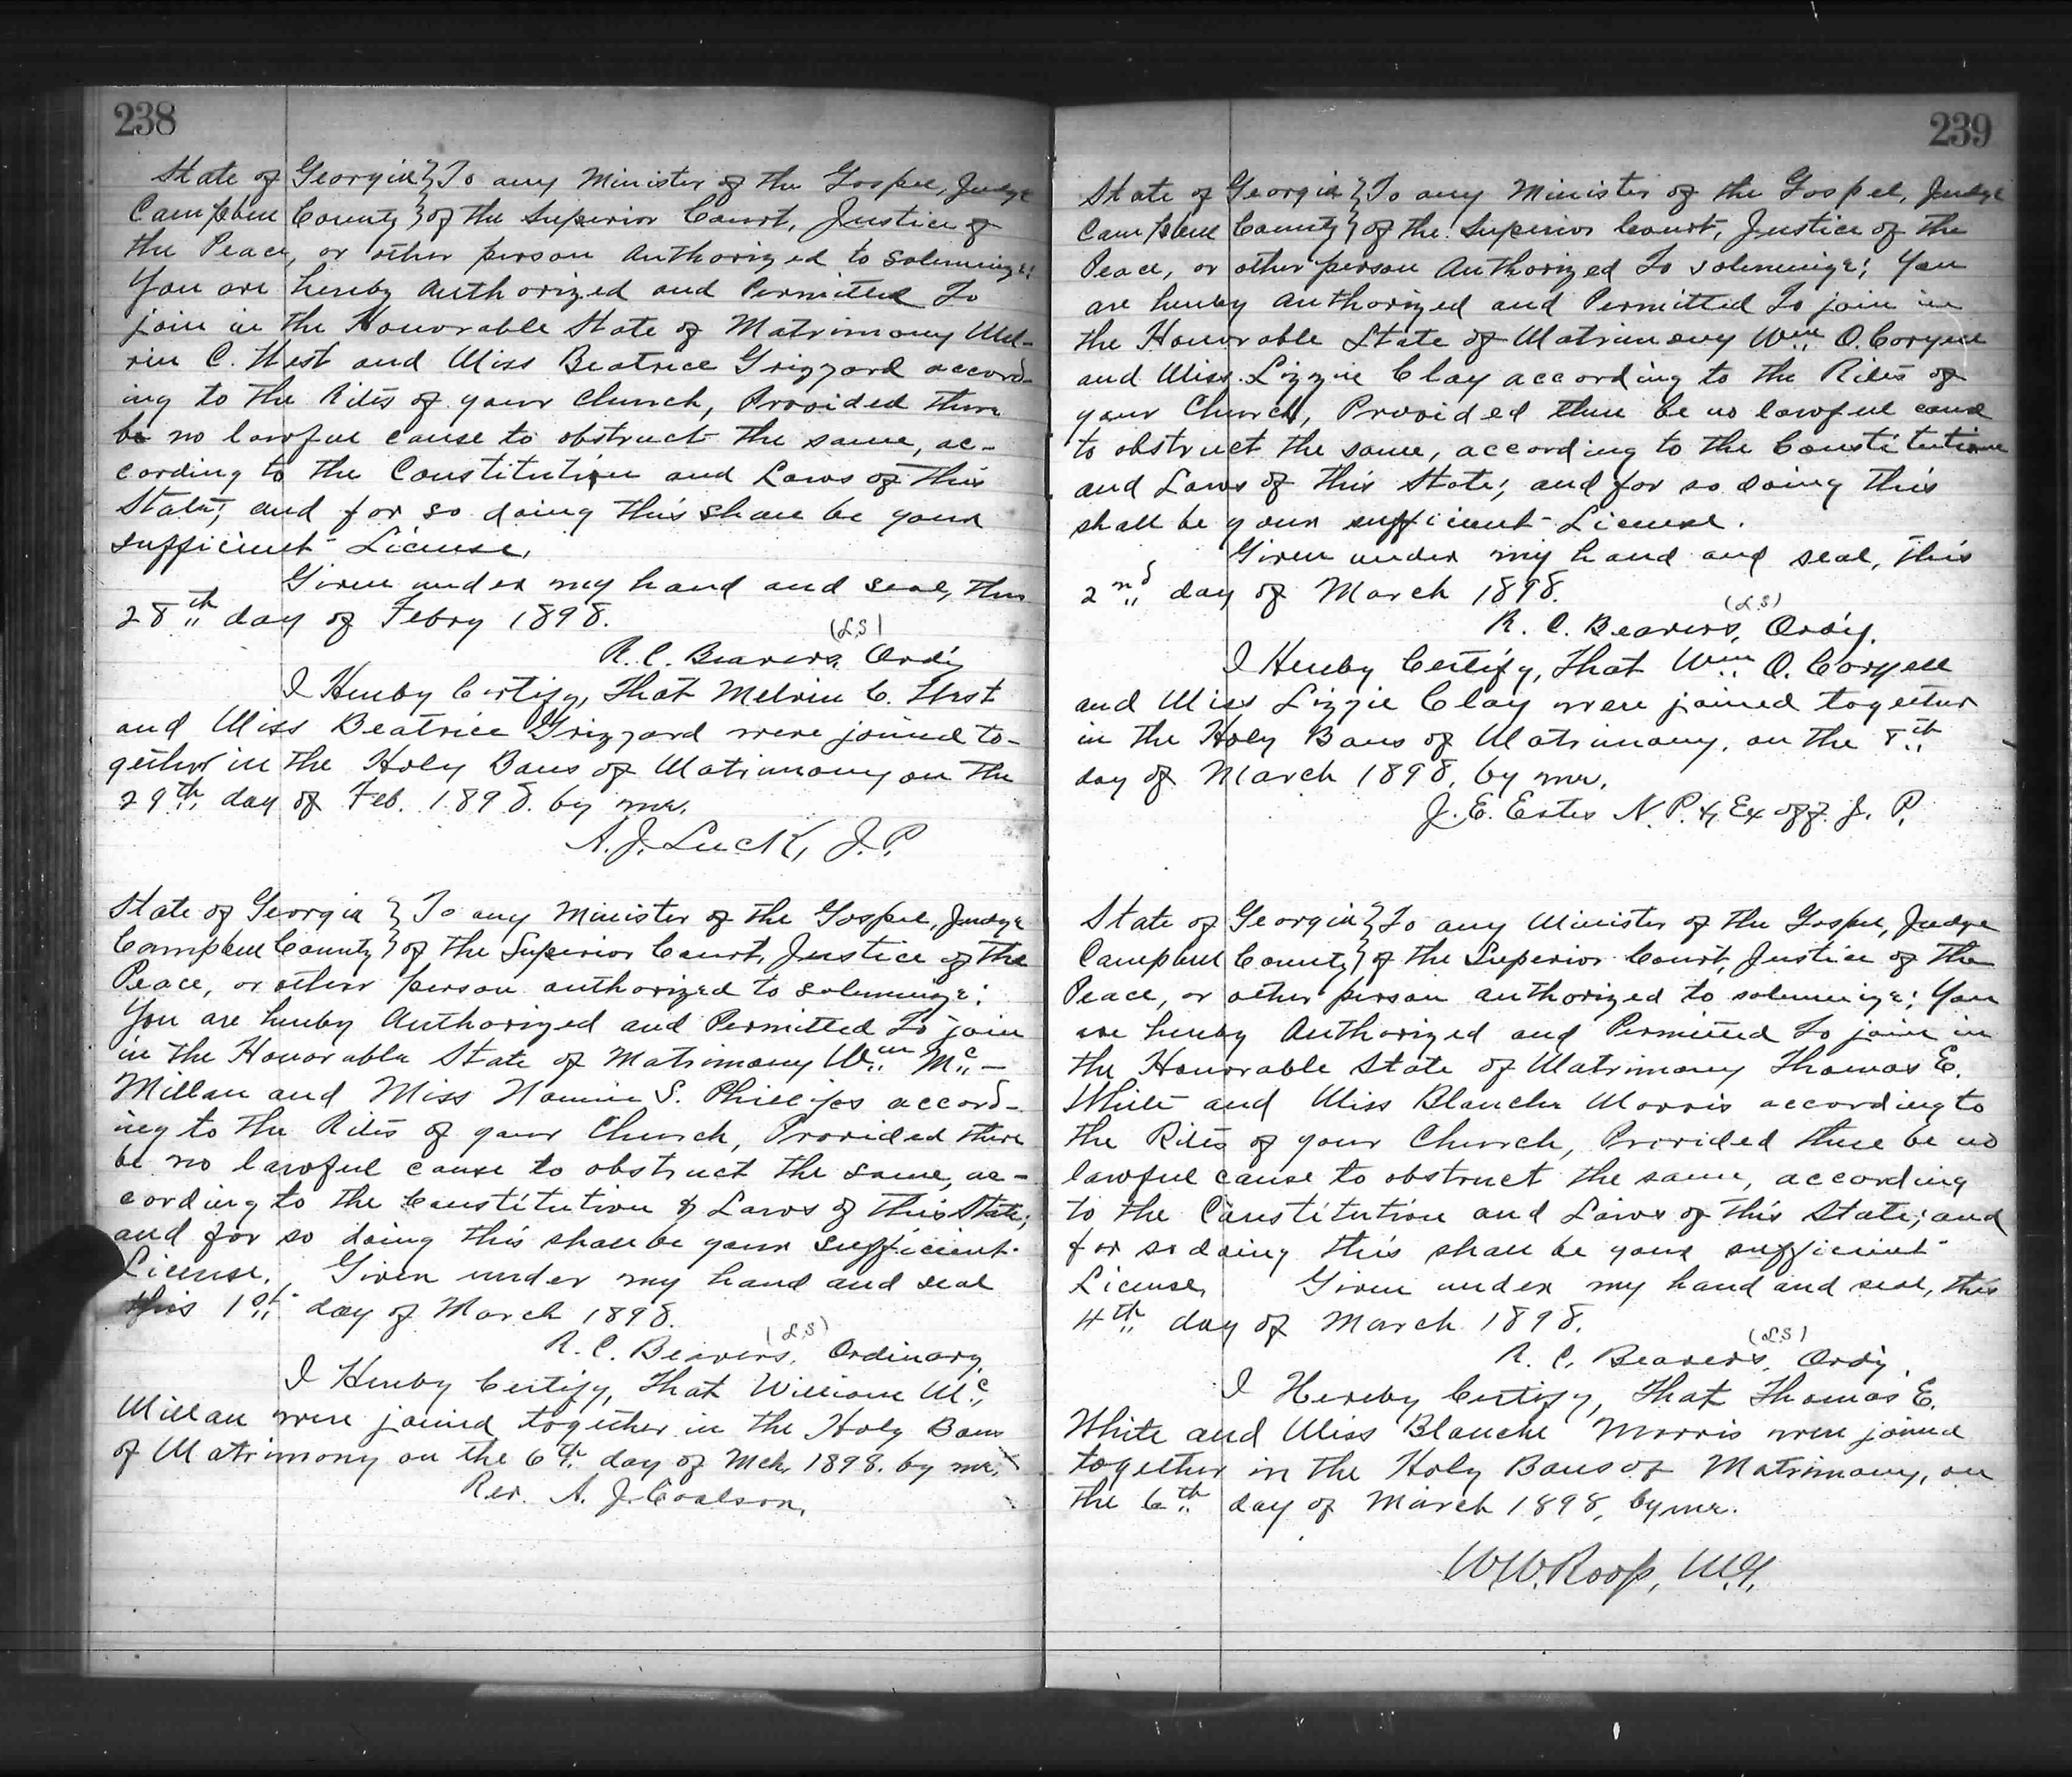 238
State of Georgia } To any Minister of the Gospel, Judge
Campbell County } of the Superior Court, Justice of
the Peace, or other person Authorized to solemnize:
You are hereby Authorized and Permitted To
join in the Honorable State of Matrimony Mel-
vin C. West and Miss Beatrice Grizzard accord-
ing to the Rites of your Church, Provided there
be no lawful cause to obstruct the same, ac-
cording to the Constitution and Laws of this
State; and for so doing this shall be your
sufficient License.
Given under my hand and seal, this
28th day of Febry 1898.
(L.S)
R. C. Beavers, Ord'y
I Hereby Certify, That Melvin C. West
and Miss Beatrice Grizzard were joined to-
gether in the Holy Bans of Matrimony on the
29th day of Feb. 1898. by me.
A. J. Luck, J. P.
State of Georgia } To any Minister of the Gospel, Judge
Campbell County } of the Superior Court, Justice of the
Peace, or other person authorized to solemnize:
You are hereby Authorized and Permitted To join
in the Honorable State of Matrimony Wm Mc-
Millan and Miss Nannie S. Phillips accord-
ing to the Rites of your Church, Provided there
be no lawful cause to obstruct the same, ac-
cording to the Constitution & Laws of this State;
and for so doing this shall be your sufficient
License. Given under my hand and seal
this 1st day of March 1898.
(L.S)
R. C. Beavers, Ordinary.
I Hereby Certify, That William Mc
Millan were joined together in the Holy Bans
of Matrimony on the 6th day of Mch. 1898. by me.
Rev. A. J. Coalson.
239
State of Georgia } To any Minister of the Gospel, Judge
Campbell County } of the Superior Court, Justice of the
Peace, or other person Authorized To solemnize; You
are hereby Authorized and Permitted To join in
the Honorable State of Matrimony Wm O. Coryell
and Miss Lizzie Clay according to the Rites of
your Church, Provided there be no lawful cause
to obstruct the same, according to the Constitution
and Laws of this State; and for so doing this
shall be your sufficient License.
Given under my hand and seal, this
2nd day of March 1898.
(L.S)
R. C. Beavers, Ord'y.
I Hereby Certify, That Wm O. Coryell
and Miss Lizzie Clay were joined together
in the Holy Bans of Matrimony, on the 8th
day of March 1898, by me.
J. E. Estes N. P. & Ex off. J. P.
State of Georgia } To any Minister of the Gospel, Judge
Campbell County } of the Superior Court, Justice of the
Peace, or other person authorized to solemnize; You
are hereby Authorized and Permitted To join in
the Honorable State of Matrimony Thomas E.
White and Miss Blanche Morris according to
the Rites of your Church, Provided there be no
lawful cause to obstruct the same, according
to the Constitution and Laws of this State; and
for so doing this shall be your sufficient
License. Given under my hand and seal, this
4th day of March 1898.
(L.S)
R. C. Beavers, Ord'y.
I Hereby Certify, That Thomas E.
White and Miss Blanche Morris were joined
together in the Holy Bans of Matrimony, on
the 6th day of March 1898, by me.
W. W. Roop, M.G.